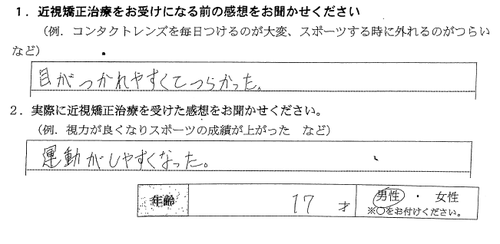 １．近視矯正治療をお受けになる前の感想をお聞かせください
（例．コンタクトレンズを毎日つけるのが大変、スポーツする時に外れるのがつらい
など）
目がつかれやすくてつらかった。
２．実際に近視矯正治療を受けた感想をお聞かせください。
（例．視力が良くなりスポーツの成績が上がった　など）
運動がしやすくなった。
年齢　17　才　男性・女性
※○をお付けください。